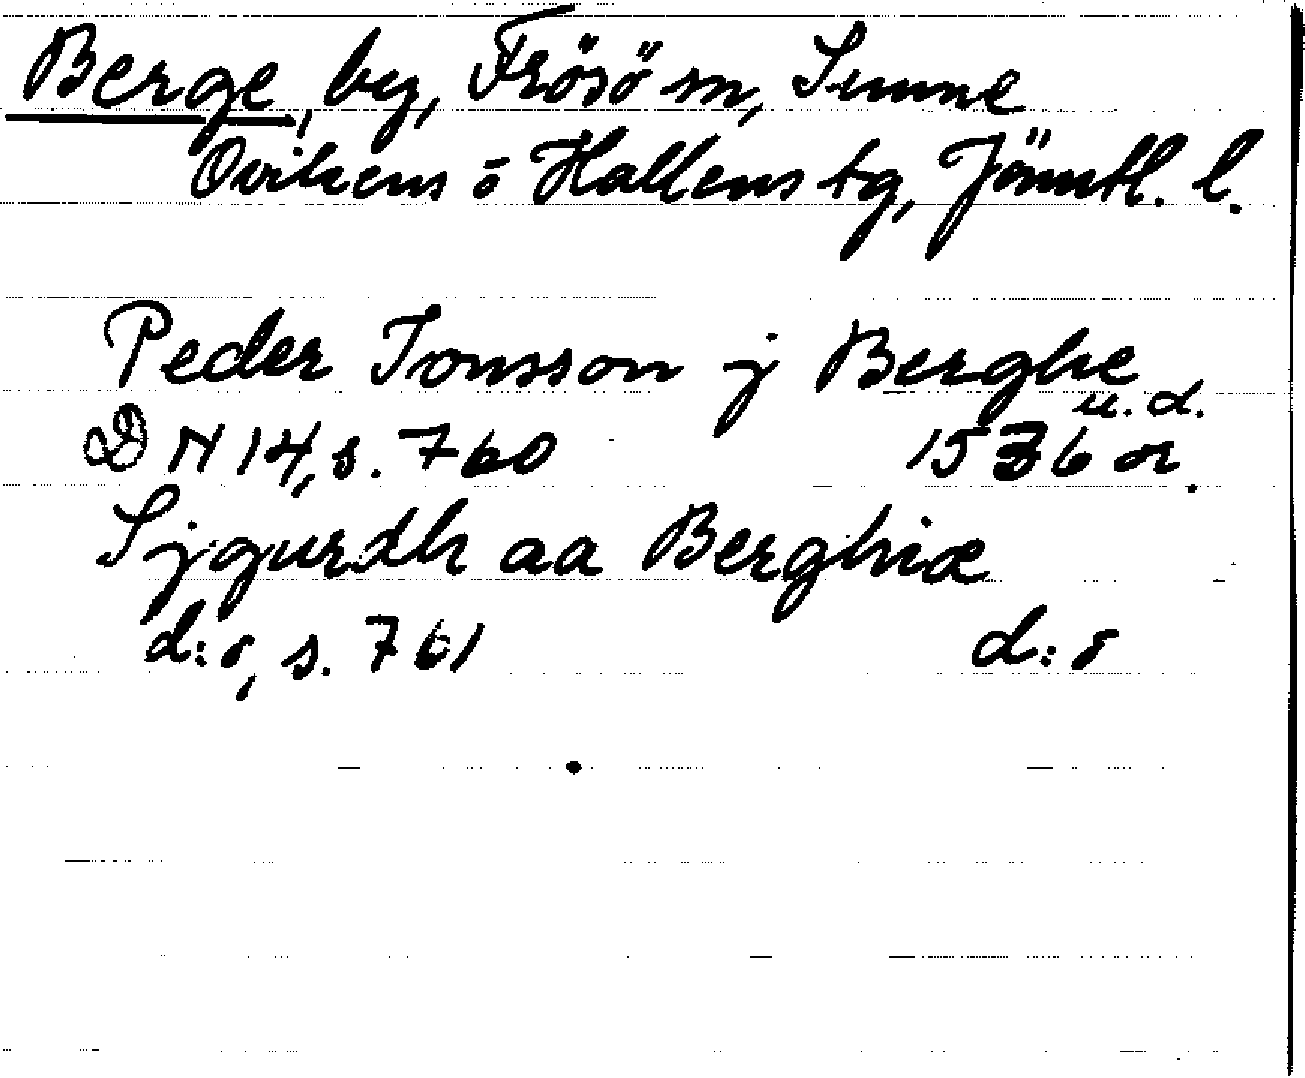 Berge, by, Frösö sn, Sunne
Ovikens o Hallens tg, Jämtl. l.
Peder Jonsson j Berghe
u. d.
DN 14, s. 760 1536 or.
Sjgurdh aa Berghiæ
d:o, s. 761 d:o